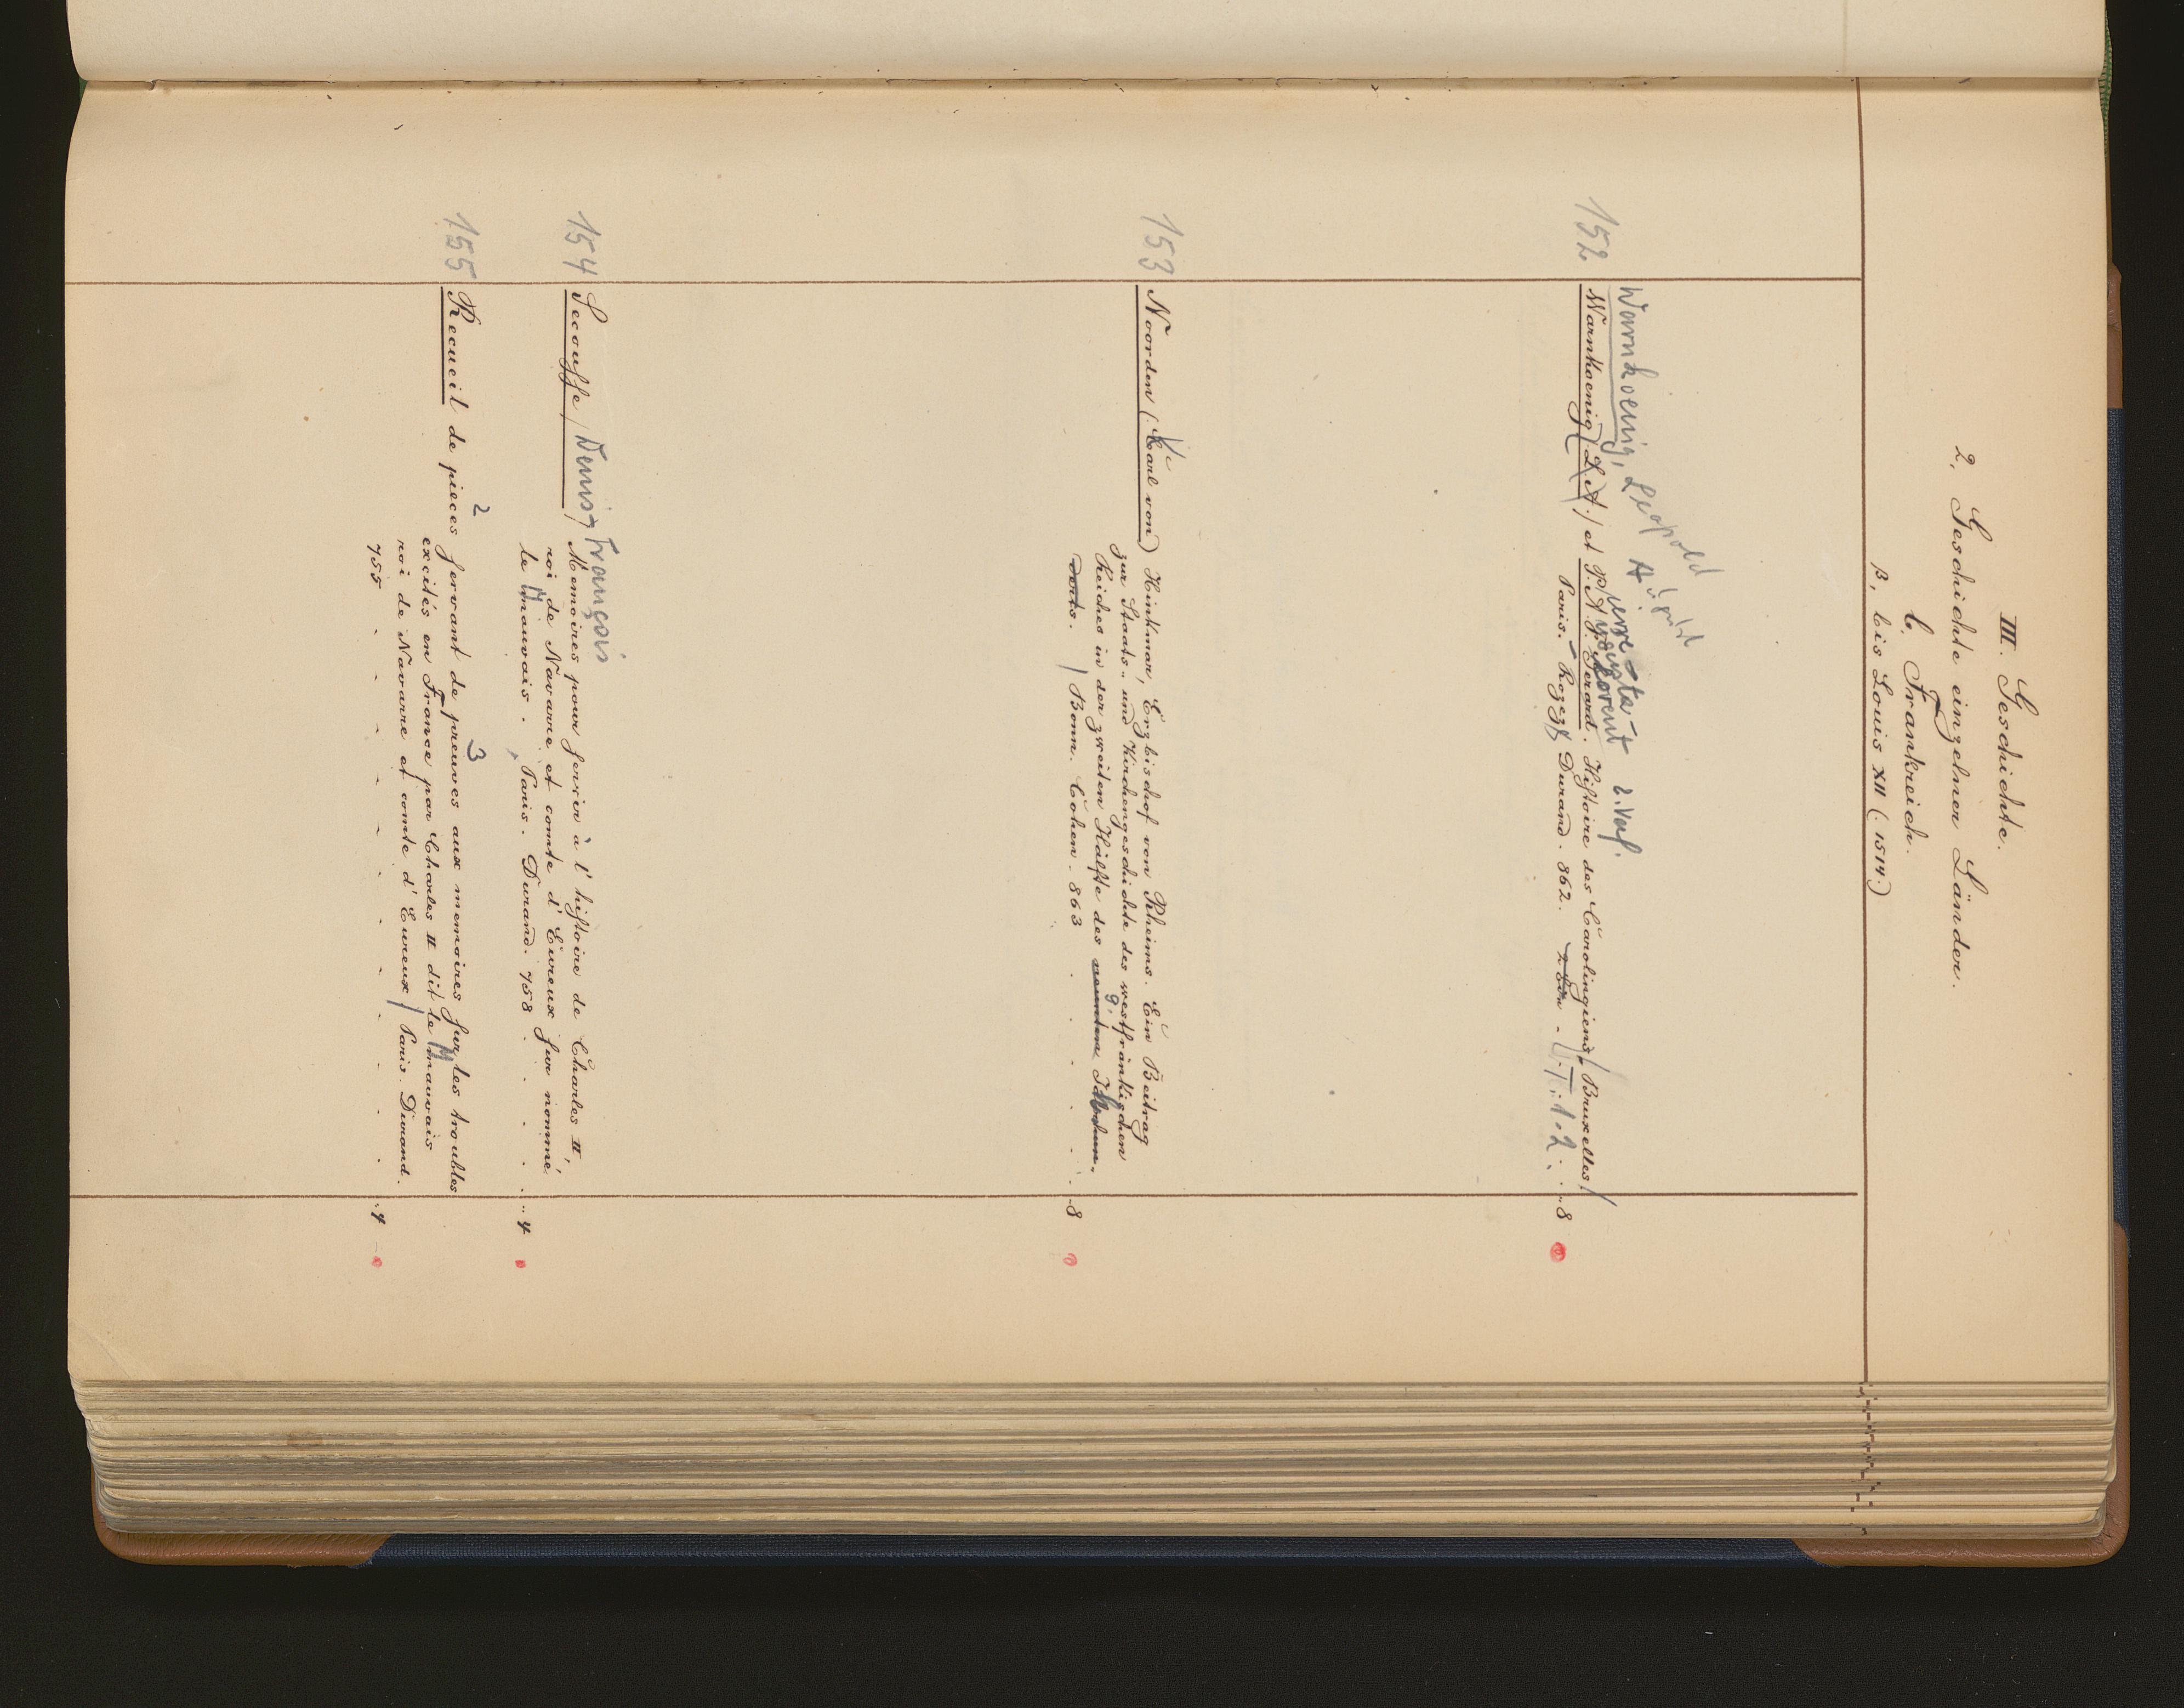 III. Geschichte.
2, Geschichte einzelner Länder.
C, Frankreich.
β, bis Louis XII (1514.)
Warnkoenig, Leopold August
Pierre-Auguste-Florent 2. Verf.
152 Warnkoenig (L. A.) et P. A. F. Gerard. Histoire des Carolingiens / Bruxelles /
Paris. - Rozez / Durand. 862. 2 Bde - T. 1. 2. . . 8
153 Noorden (Carl von) Hinkmar, Erzbischof von Rheims. Ein Beitrag
K
zur Staats- und Kirchengeschichte des westfränkischen
Reiches in der zweiten Hälfte des neunten Jahrhun-
9.
derts. / Bonn. Cohen. 863 . . . . 8
154 Secousse / Denis-François
Mémoires pour servir à l'histoire de Charles II,
roi de Navarre et comte d'Evreux sur nommé
le mauvais. Paris. Durand. 758 . . . . 4
M
155 Recueil de pieces servant de preuves aux memoires sur les troubles
2 3
excités en France par Charles II dit le mauvais
M
roi de Navarre et comte d'Evreux / Paris. Durand.
755 . . . . . . . . . . 4